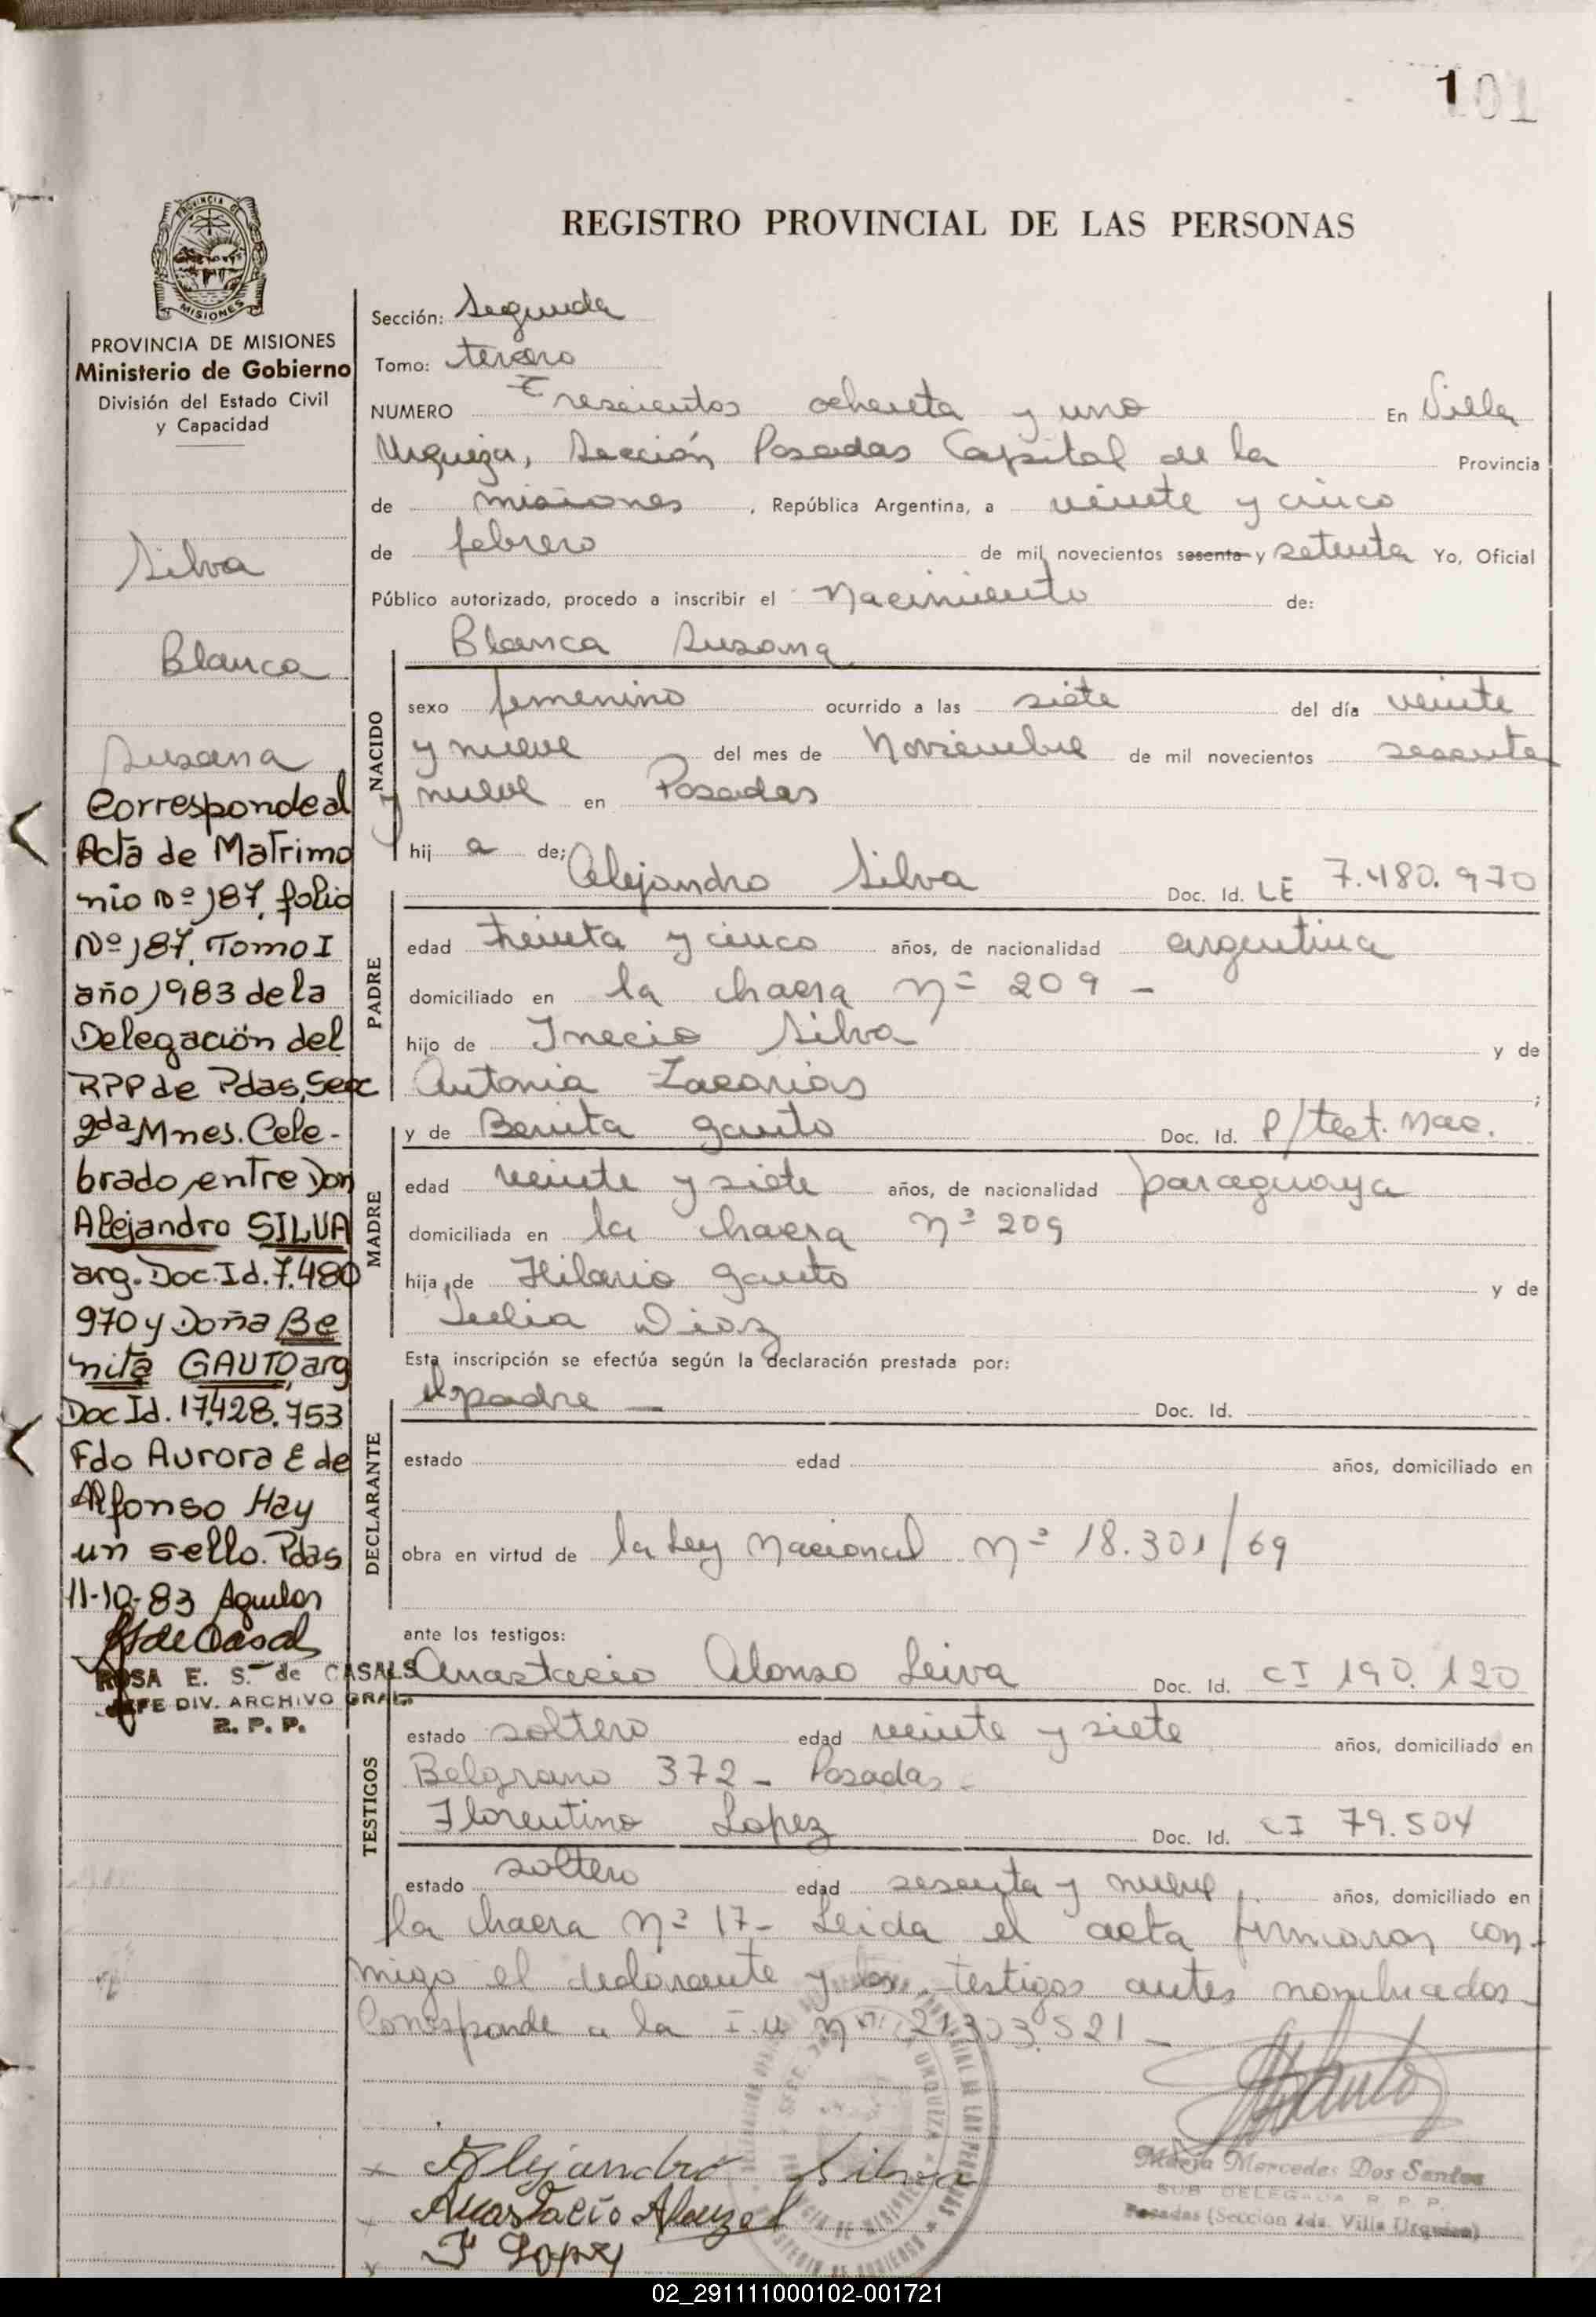 101
REGISTRO PROVINCIAL DE LAS PERSONAS
MISIONES
PROVINCIA DE MISIONES
Ministerio de Gobierno
División del Estado Civil
y Capacidad
Silva
Blanca
Susana
Corresponde al
Acta de Matrimo
nio Nº 187, folio
Nº 187, Tomo I
año 1983 de la
Delegación del
RPP de Pdas, Secc
2da Mnes. Cele-
brado entre Don
Alejandro SILVA
arg. Doc. Id. 7.480
970 y Doña Be
nita GAUTO, arg
Doc Id. 17.428.753
Fdo Aurora E de
Alfonso Hay
un sello. Pdas
11-10-83 Aguilar
ROSA E. S. de CASALS
JEFE DIV. ARCHIVO GRAL.
R. P. P.
Sección: Segunda
Tomo: tercero
NUMERO Trescientos ochenta y uno En Villa
Urquiza, Sección Posadas Capital de la Provincia
de misiones, República Argentina, a veinte y cinco
de febrero de mil novecientos sesenta y setenta Yo, Oficial
Público autorizado, procedo a inscribir el Nacimiento de:
Blanca Susana
NACIDO
sexo femenino ocurrido a las siete del día veinte
y nueve del mes de Noviembre de mil novecientos sesenta
y nueve en Posadas
hij a de;
Alejandro Silva Doc. Id. LE 7.480.970
PADRE
edad treinta y cinco años, de nacionalidad argentina
domiciliado en la chacra nº 209 -
hijo de Inecio Silva y de
Antonia Zacarias ;
y de Benita Gauto Doc. Id. P/test. Nac.
MADRE
edad veinte y siete años, de nacionalidad paraguaya
domiciliada en la chacra nº 209
hija de Hilario Gauto y de
Julia Diaz
Esta inscripción se efectúa según la declaración prestada por:
el padre — Doc. Id.
DECLARANTE
estado edad años, domiciliado en
obra en virtud de la Ley Nacional nº 18.301/69
ante los testigos:
Anastacio Alonso Leiva Doc. Id. CI 190.120
TESTIGOS
estado soltero edad veinte y siete años, domiciliado en
Belgrano 372 - Posadas -
Florentino Lopez Doc. Id. CI 79.504
estado soltero edad sesenta y nueve, años, domiciliado en
la chacra nº 17- Leida el acta firmaron con-
migo el declarante y los testigos antes nombrados
Corresponde a la I.U nº 21.303.521 -
x Alejandro Silva
x Anastacio Alonzo L
x F Lopez
Maria Mercedes Dos Santos
SUB DELEGADA R. P. P.
Posadas (Seccion 2da. Villa Urquiza)
02_291111000102-001721